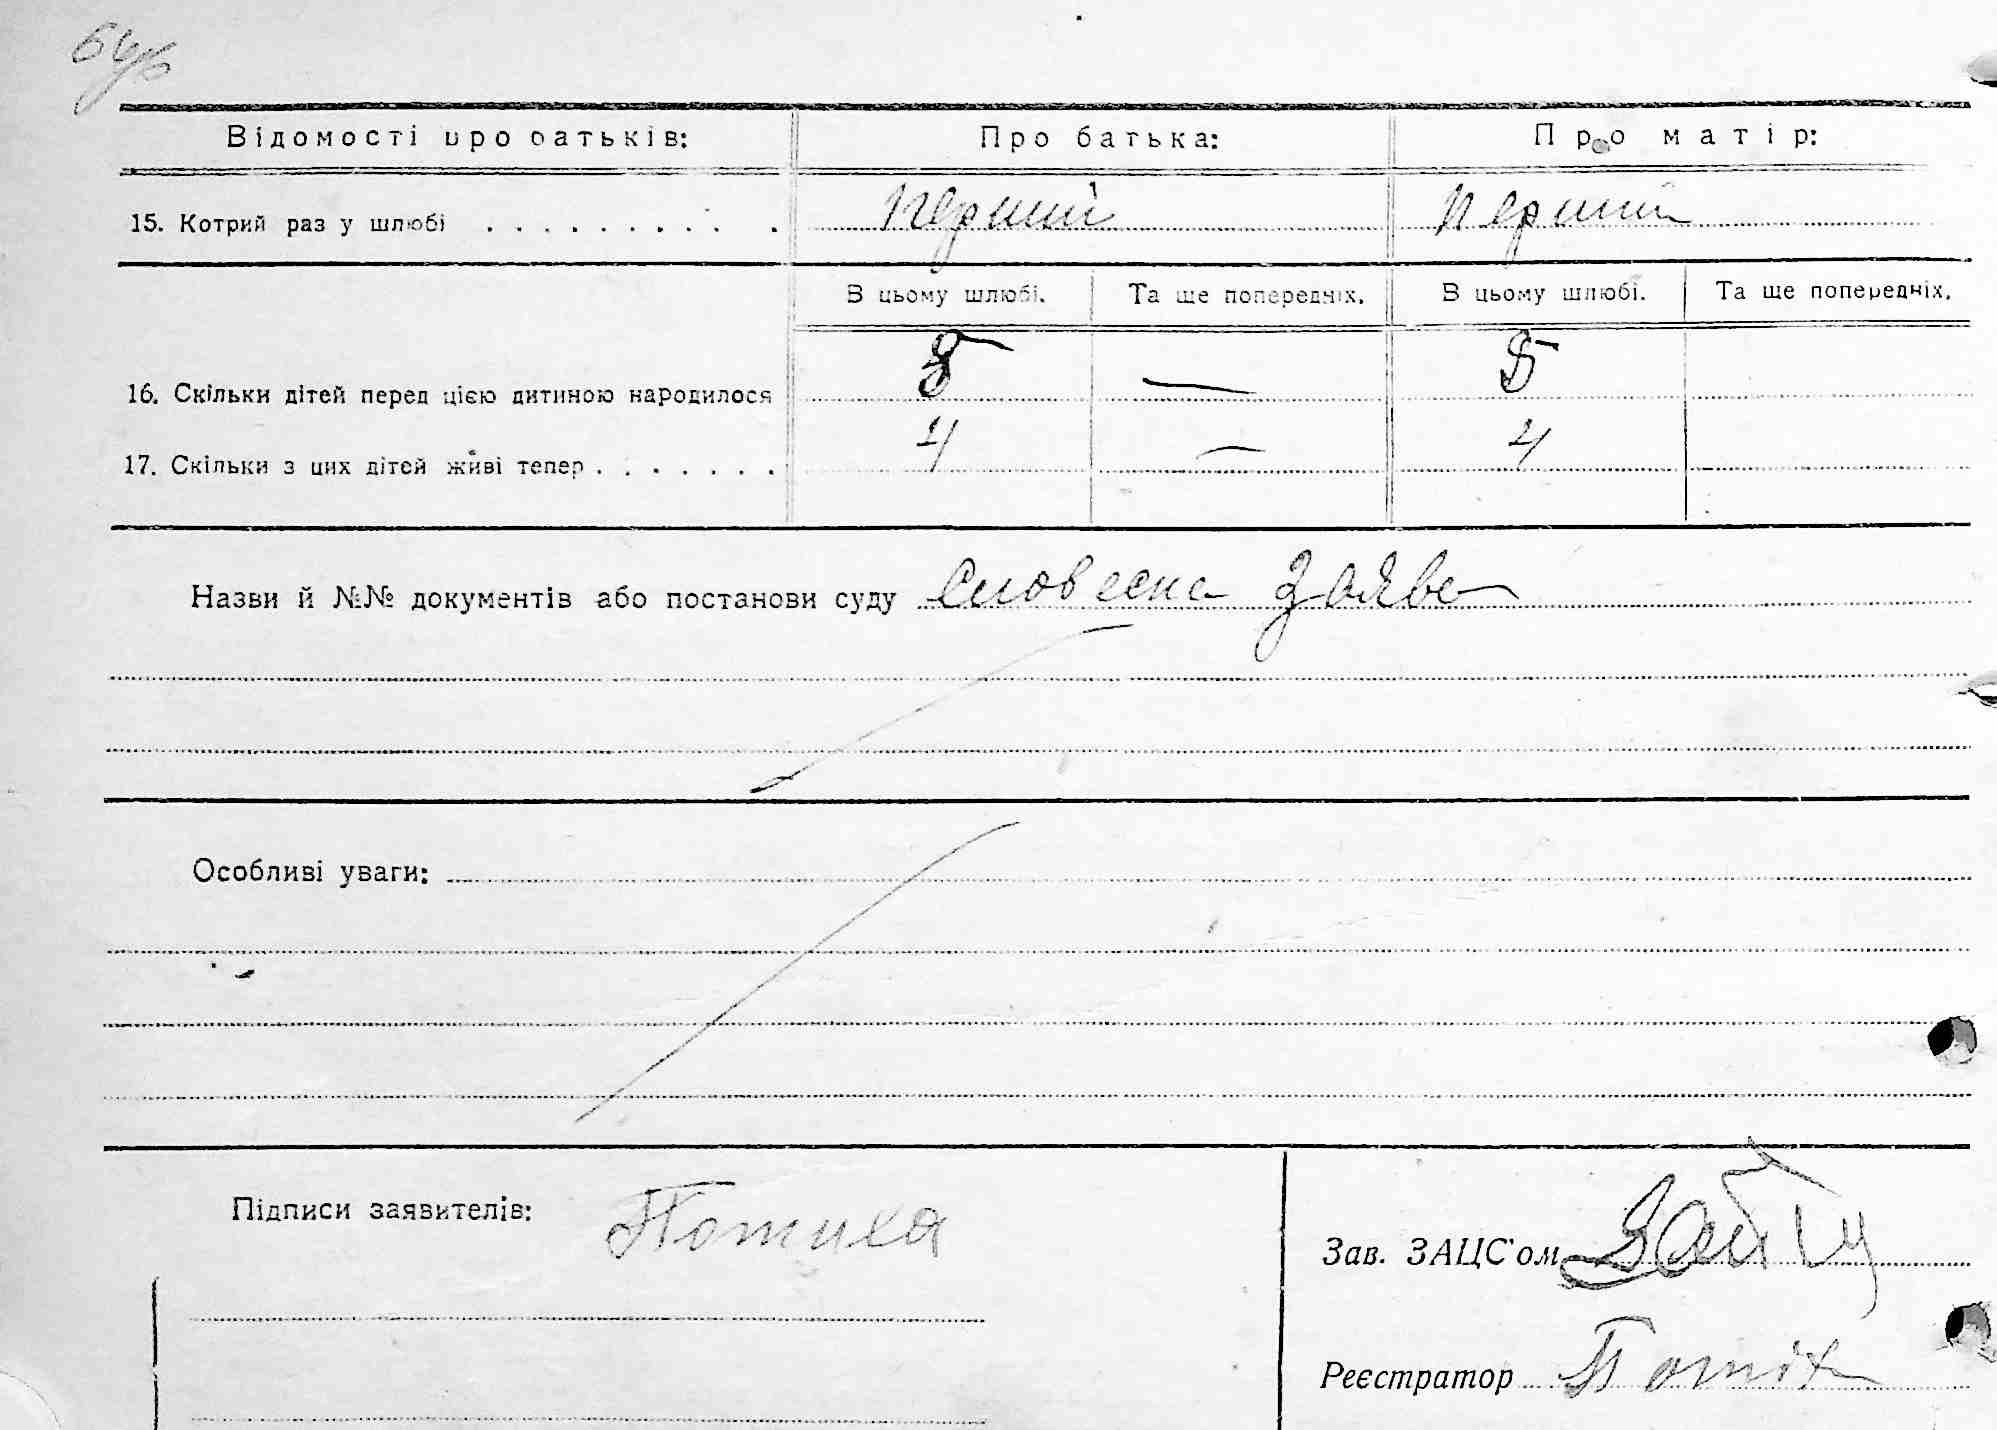 Відомості про батьків: Про батька: Про матір:
15. Котрий раз у шлюбі . . . . . . . . . . перший перший
В цьому шлюбі. Та ще попередніх. В цьому шлюбі. Та ще попередніх.
16. Скільки дітей перед цією дитиною народилося 5 — 5
17. Скільки з цих дітей живі тепер . . . . . . . 4 — 4
Назви й №№ документів або постанови суду словесна заява
Особливі уваги:
Підписи заявителів: Потиха
Зав. ЗАЦС'ом
Реєстратор